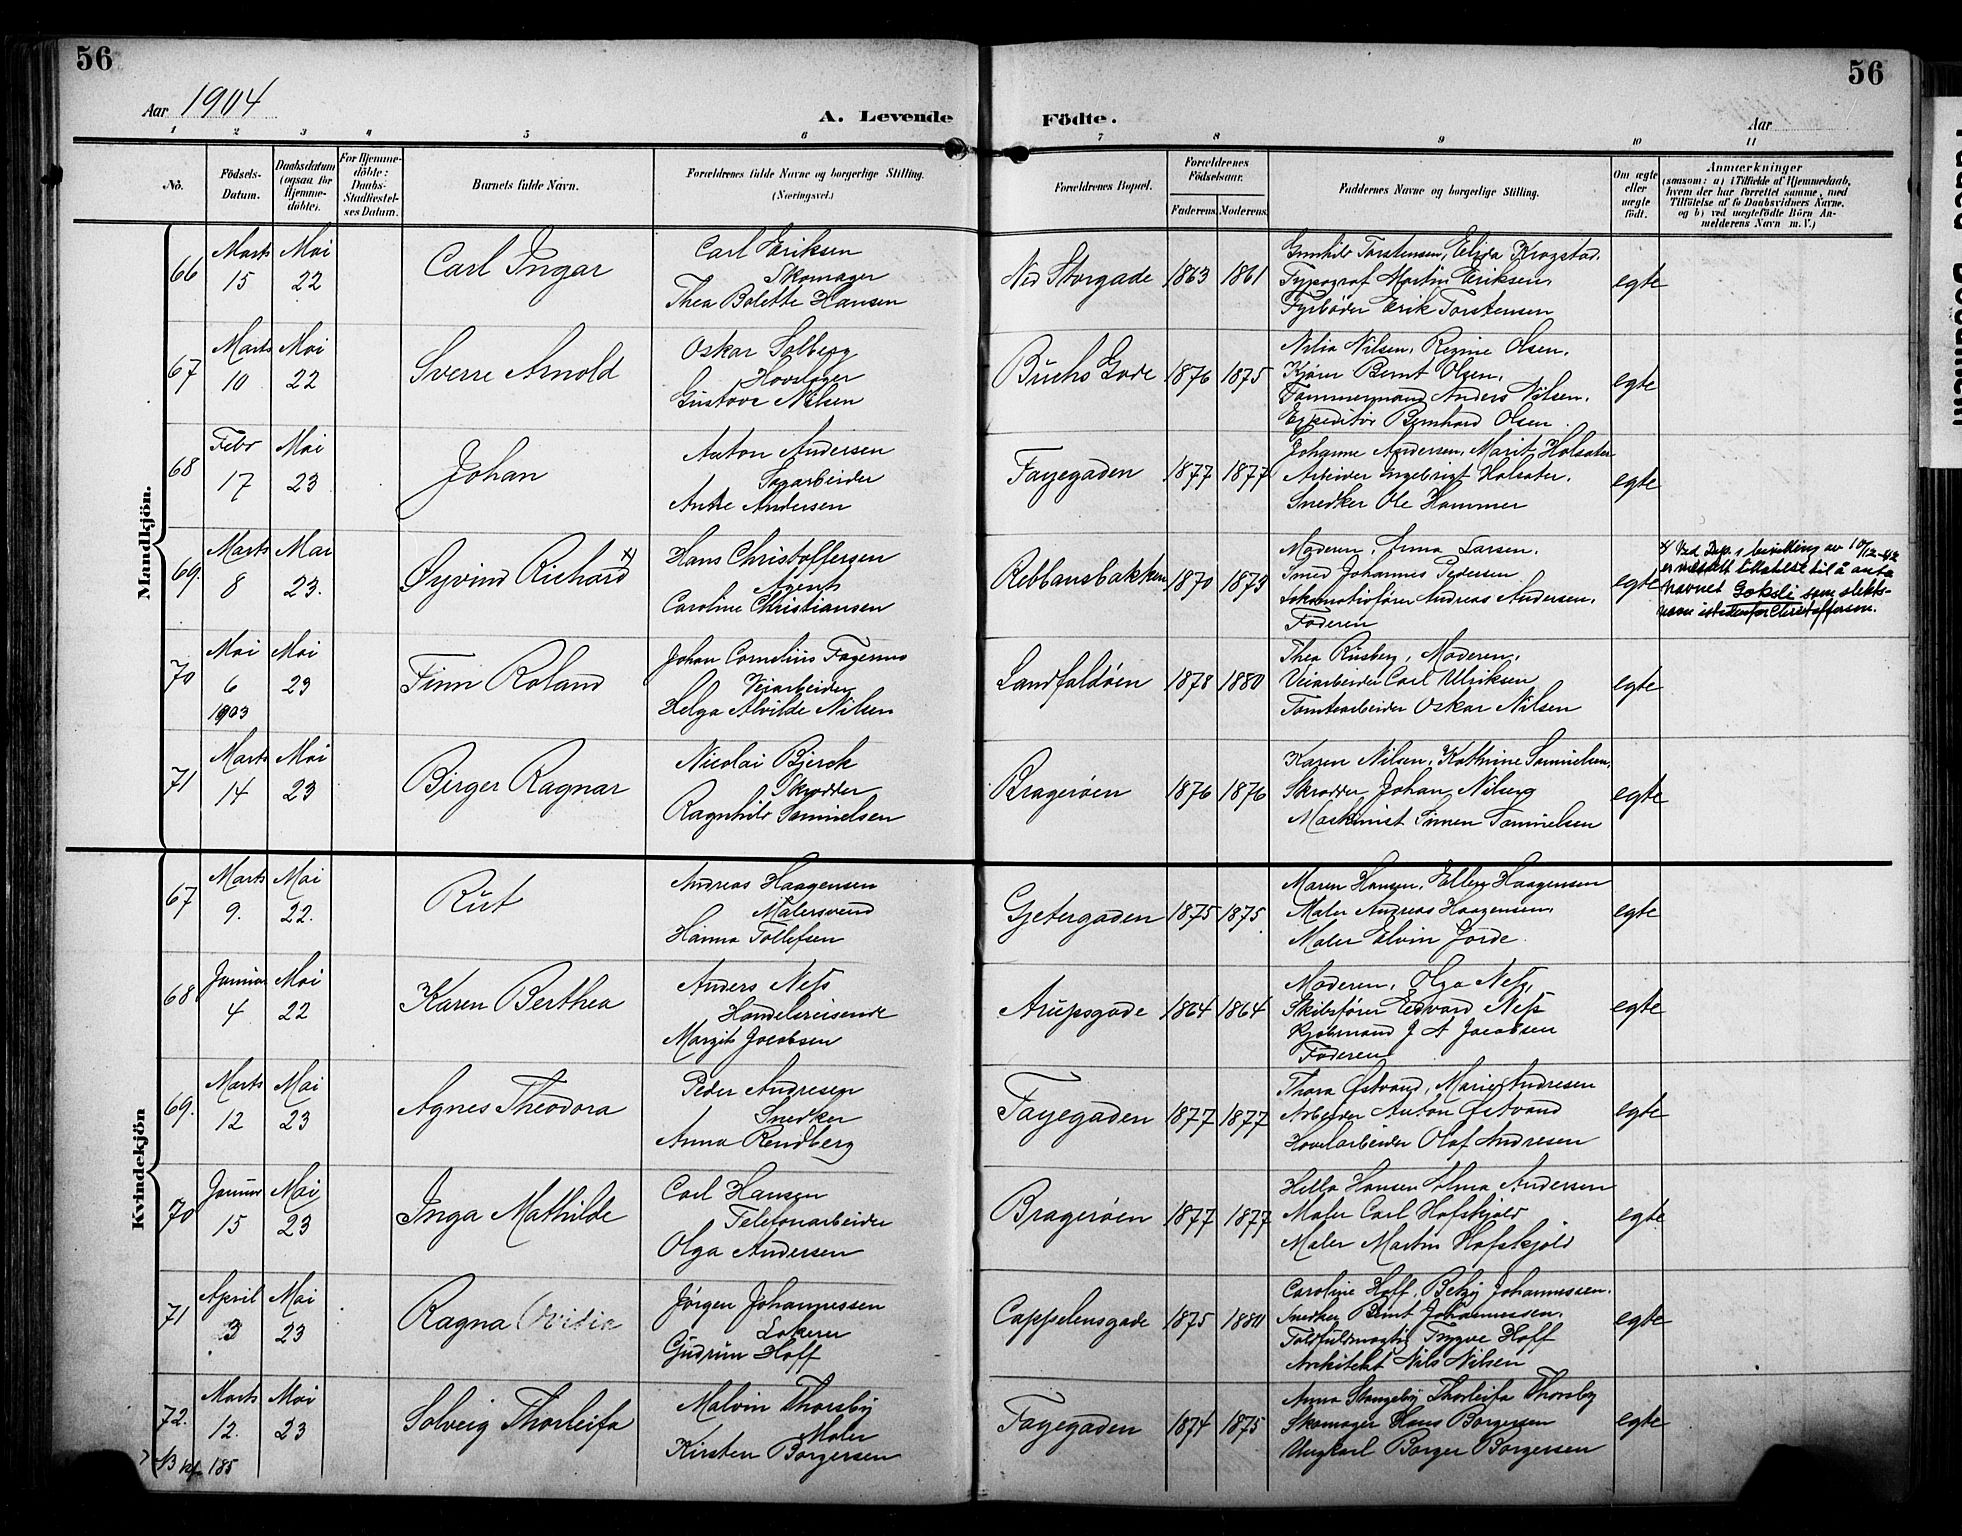 56
56
Aar 1904
A. Levende Födte.
Aar
1 2 3 4 5 6 7 8 9 10 11
No.
Födsels-Datum.
Daabsdatum (ogsaa for Hjemme-döbte).
For Hjemme-döbte: Daabs-Stadfæstel-ses Datum.
Barnets fulde Navn.
Forældrenes fulde Navne og borgerlige Stilling. (Næringsvei.)
Forældrenes Bopæl.
Forældrenes Födselsaar.
Faderens. Moderens.
Faddernes Navne og borgerlige Stilling.
Om ægte eller uægte födt.
Anmærkninger
(saasom: a) i Tilfælde af Hjemmedaab, hvem der har forrettet samme, med Tilföielse af to Daabsvidners Navne, og b) ved uægtefödte Börn An-melderens Navn m. V.)
Mandkjön.
66 Marts 15 Mai 22 Carl Ingar
Carl Eriksen
Skomager
Thea Bolette Hansen
Ned Storgade 1863 1861
Gunhild Torstensen, Elida Krogstad.
Typograf Martin Eriksen,
Fyrbøder Erik Torstensen
egte
67 Marts 10 Mai 22 Sverre Arnold
Oskar Solberg
Hovslager
Gustava Nilsen
Buchs Gade 1876 1875
Nilia Nilsen, Regine Olsen,
Kjører Bernt Olsen,
Tømmermand Anders Nilsen,
Expeditør Bernhard Olsen
egte
68 Febr 17 Mai 23 Johan
Anton Andersen
Sagarbeider
Anne Andersen
Fayegaden 1877 1877
Johanne Andersen, Marit Holsæter
Arbeider Engebrigt Holsæter,
Snedker Ole Hammer
egte
69. Marts 8 Mai 23. Øyvind Richard x)
Hans Christoffersen
Agent
Caroline Christiansen
Rebbansbakken 1870 1879
Moderen, Anna Larsen,
Smed Johannes Pedersen
Lokomotivfører Andreas Andersen,
Faderen
egte
x) Ved Dep.s bevilling av 10/12-42
er meddelt tillatelse til å anta
navnet Gaksli som slekts-
navn istedenfor Christoffersen.
70 Mai 6 1903 Mai 23 Finn Roland
Johan Cornelius Fagernes
Veiarbeider
Helga Alvilde Nilsen
Landfaldøen 1878 1880
Thea Risberg, Moderen,
Veiarbeider Carl Ulriksen
Tomtearbeider Oskar Nilsen
egte
71 Marts 14 Mai 23 Birger Ragnar
Nicolai Bjerck
Skrædder
Ragnhild Samuelsen
Bragerøen 1876 1876
Karen Nilsen, Kathrine Samuelsen,
Skrædder Johan Nilsen
Maskinist Simen Samuelsen
egte
Kvindekjön
67 Marts 9. Mai 22. Rut
Andreas Haagensen
Malersvend
Hanna Tollefsen
Gjetergaden 1875 1875
Maren Hansen, Ellen Haagensen
Maler Andreas Haagensen,
Maler Elvin Gorde.
egte
68 Januar 4 Mai 22 Karen Berthea
Anders Ness
Handelsreisende
Margit Jacobsen
Arupsgade 1864 1864
Moderen, Olga Ness,
Skibsfører Edvard Ness
Kjøbmand J A Jacobsen
Faderen
egte
69. Marts 12 Mai 23 Agnes Theodora
Peder Andresen
Snedker
Anna Rendberg
Fayegaden 1877 1877
Thora Østvand, Marie Andresen
Arbeider Anton Østvand
Høvelarbeider Olaf Andresen
egte
70 Januar 15 Mai 23 Inga Mathilde
Carl Hansen
Telefonarbeider
Olga Andersen
Bragerøen 1877 1877
Hella Hansen Alma Andersen
Maler Carl Hofskjold
Maler Martin Hofskjold
egte
71 April 3 Mai 23 Ragna Ovidia
Jørgen Johannessen
Lakerer
Gudrun Hoff
Cappelensgade 1875 1880
Caroline Hoff, Betzy Johannessen.
Snedker Bernt Johannessen,
Toldfuldmægtig Tryggve Hoff
Arkitekt Nils Nilsen
egte
72. Marts 12. Mai 23 Solveig Thorleifa
Malvin Thorsby
Maler
Kirsten Borgersen
Fayegaden 1874 1875
Anna Stangeby Thorleifa Thorsby
Skomager Hans Borgersen
Ungkarl Borger Borgersen
egte
NB kf. 185